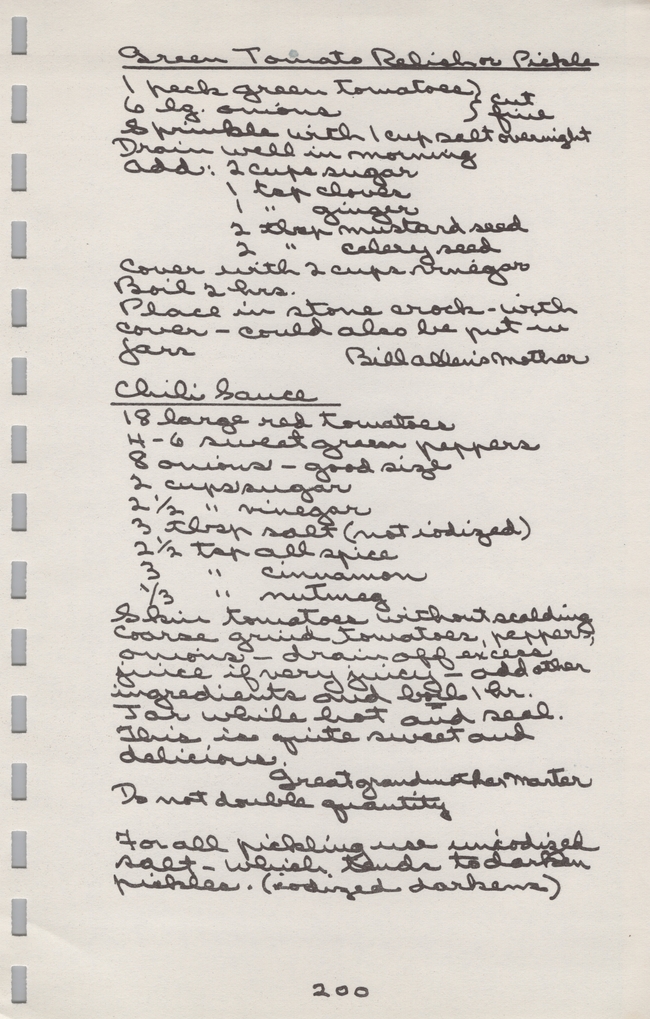 Green Tomato Relish or Pickle
1 peck green tomatoes } cut
6 lg. onions } fine
Sprinkle with 1 cup salt overnight
Drain well in morning
add: 2 cups sugar
1 tsp cloves
1 " ginger
2 tbsp mustard seed
2 " celery seed
Cover with 2 cups vinegar
Boil 2 hrs.
Place in stone crock - with
cover - could also be put in
jars Bill Allen's Mother
Chili Sauce
18 large red tomatoes
4-6 sweet green peppers
8 onions - good size
2 cups sugar
2 1/2 " vinegar
3 tbsp salt (not iodized)
2 1/2 tsp all spice
3 " cinnamon
1/3 " nutmeg
Skin tomatoes without scalding
Coarse grind tomatoes, peppers,
onions - drain off excess
juice if very juicy - add other
ingredients and boil 1 hr.
Jar while hot and seal.
This is quite sweet and
delicious.
Great grandmother Marter
Do not double quantity
For all pickling use uniodized
salt - which tends to darken
pickles. (iodized darkens)
200